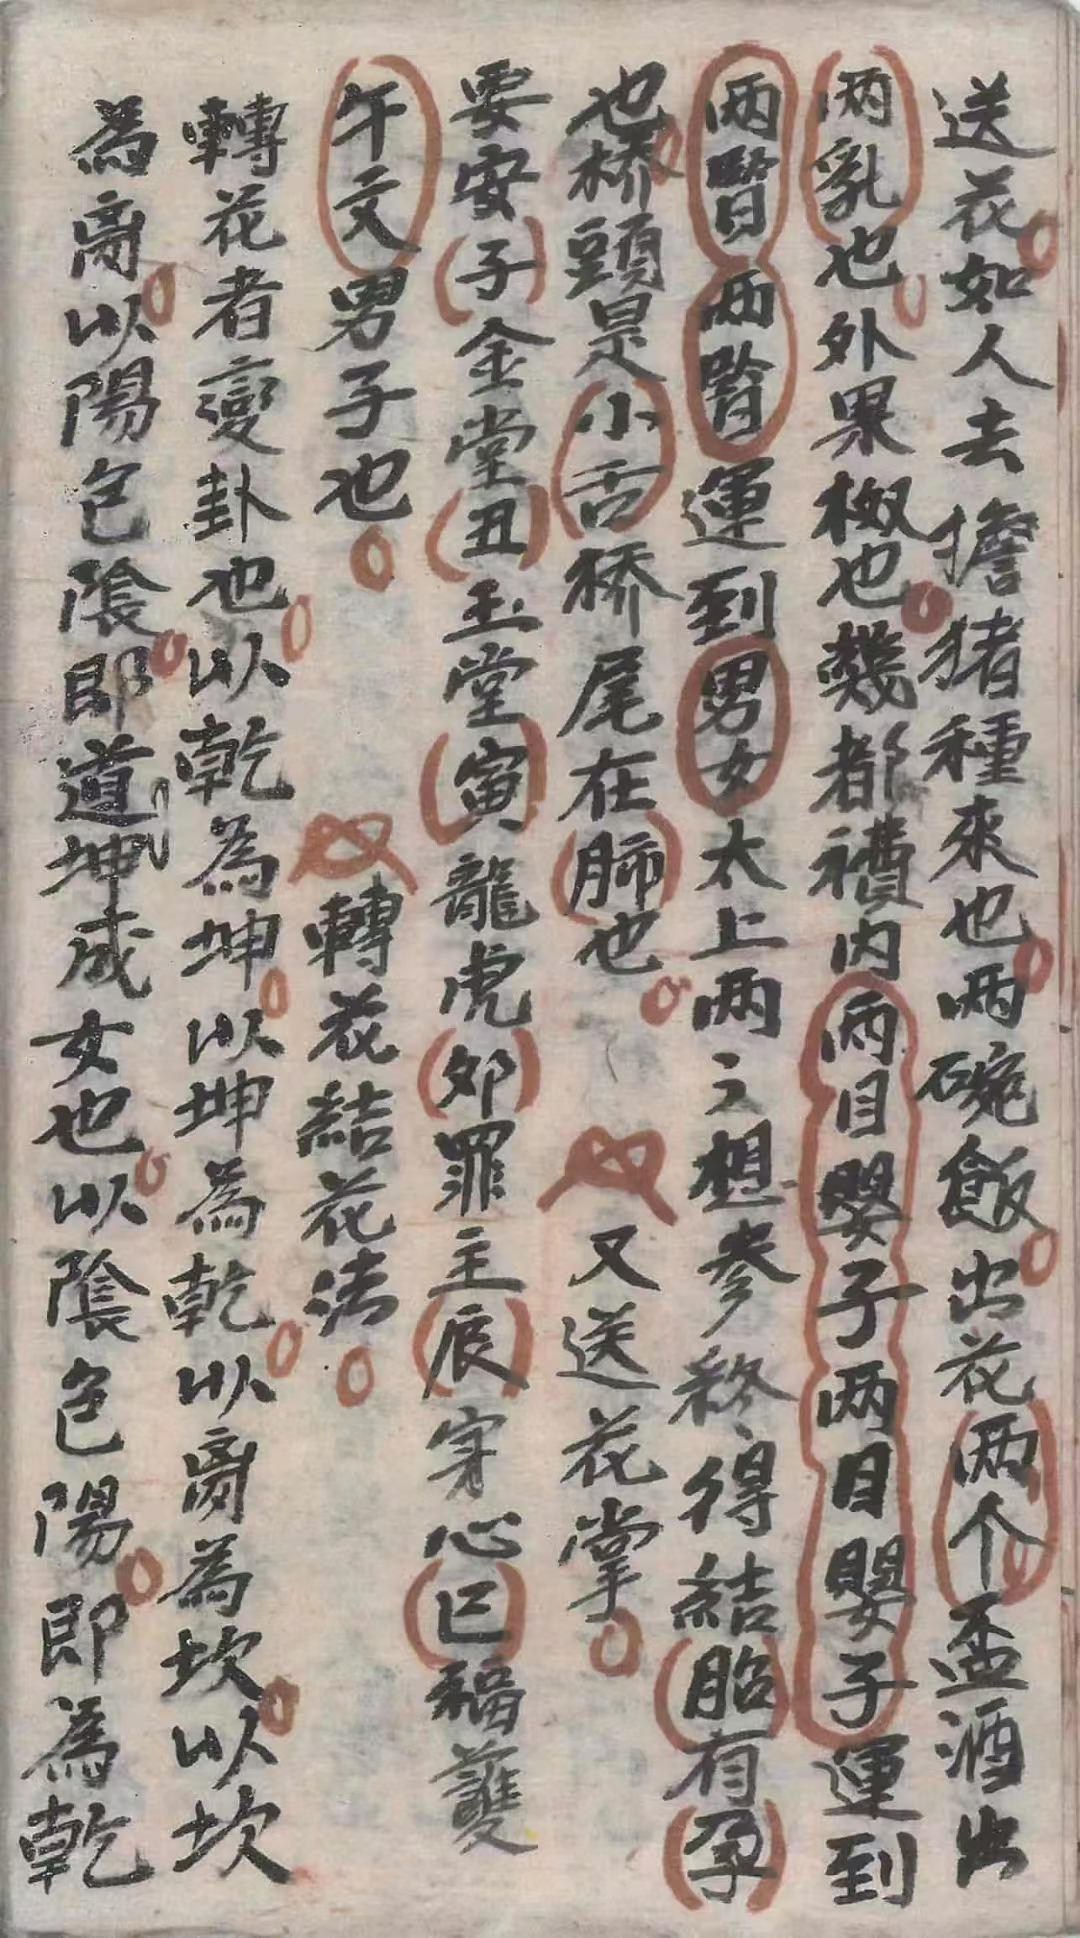 送花如人去擔猪種來也两碗飯出花两个盃酒出
两乳也外果极也幾都禮内两目嬰子两目嬰子運到
两腎两腎運到男女太上两〻想參終得結胎有孕
也桥頭是小舌桥尾在肺也 又送花掌
要安子金堂丑玉堂寅龍虎卯罪主辰穿心巳福護
午文男子也 轉花結花法
轉花者變卦也以乾為坤以坤為乾以离為坎以坎
為离以陽包陰即道坤成女也以陰包陽即為乾